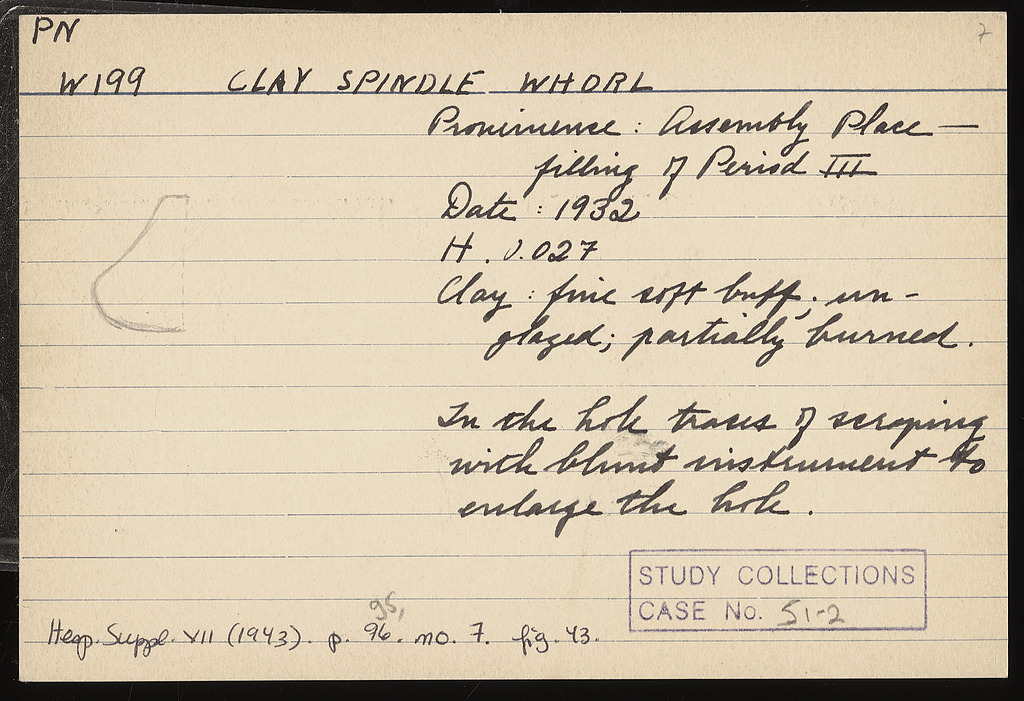 PN
7
W199 CLAY SPINDLE WHORL
Pronimence : Assembly Place —
filling of Period III
Date : 1932
H. 0.027
Clay : fine soft buff, un-
glazed; partially burned.
In the hole traces of scraping
with blunt instrument to
enlarge the hole.
STUDY COLLECTIONS
CASE No. 51-2
95,
Hesp. Suppl. VII (1943). p. 96. no. 7. fig. 43.